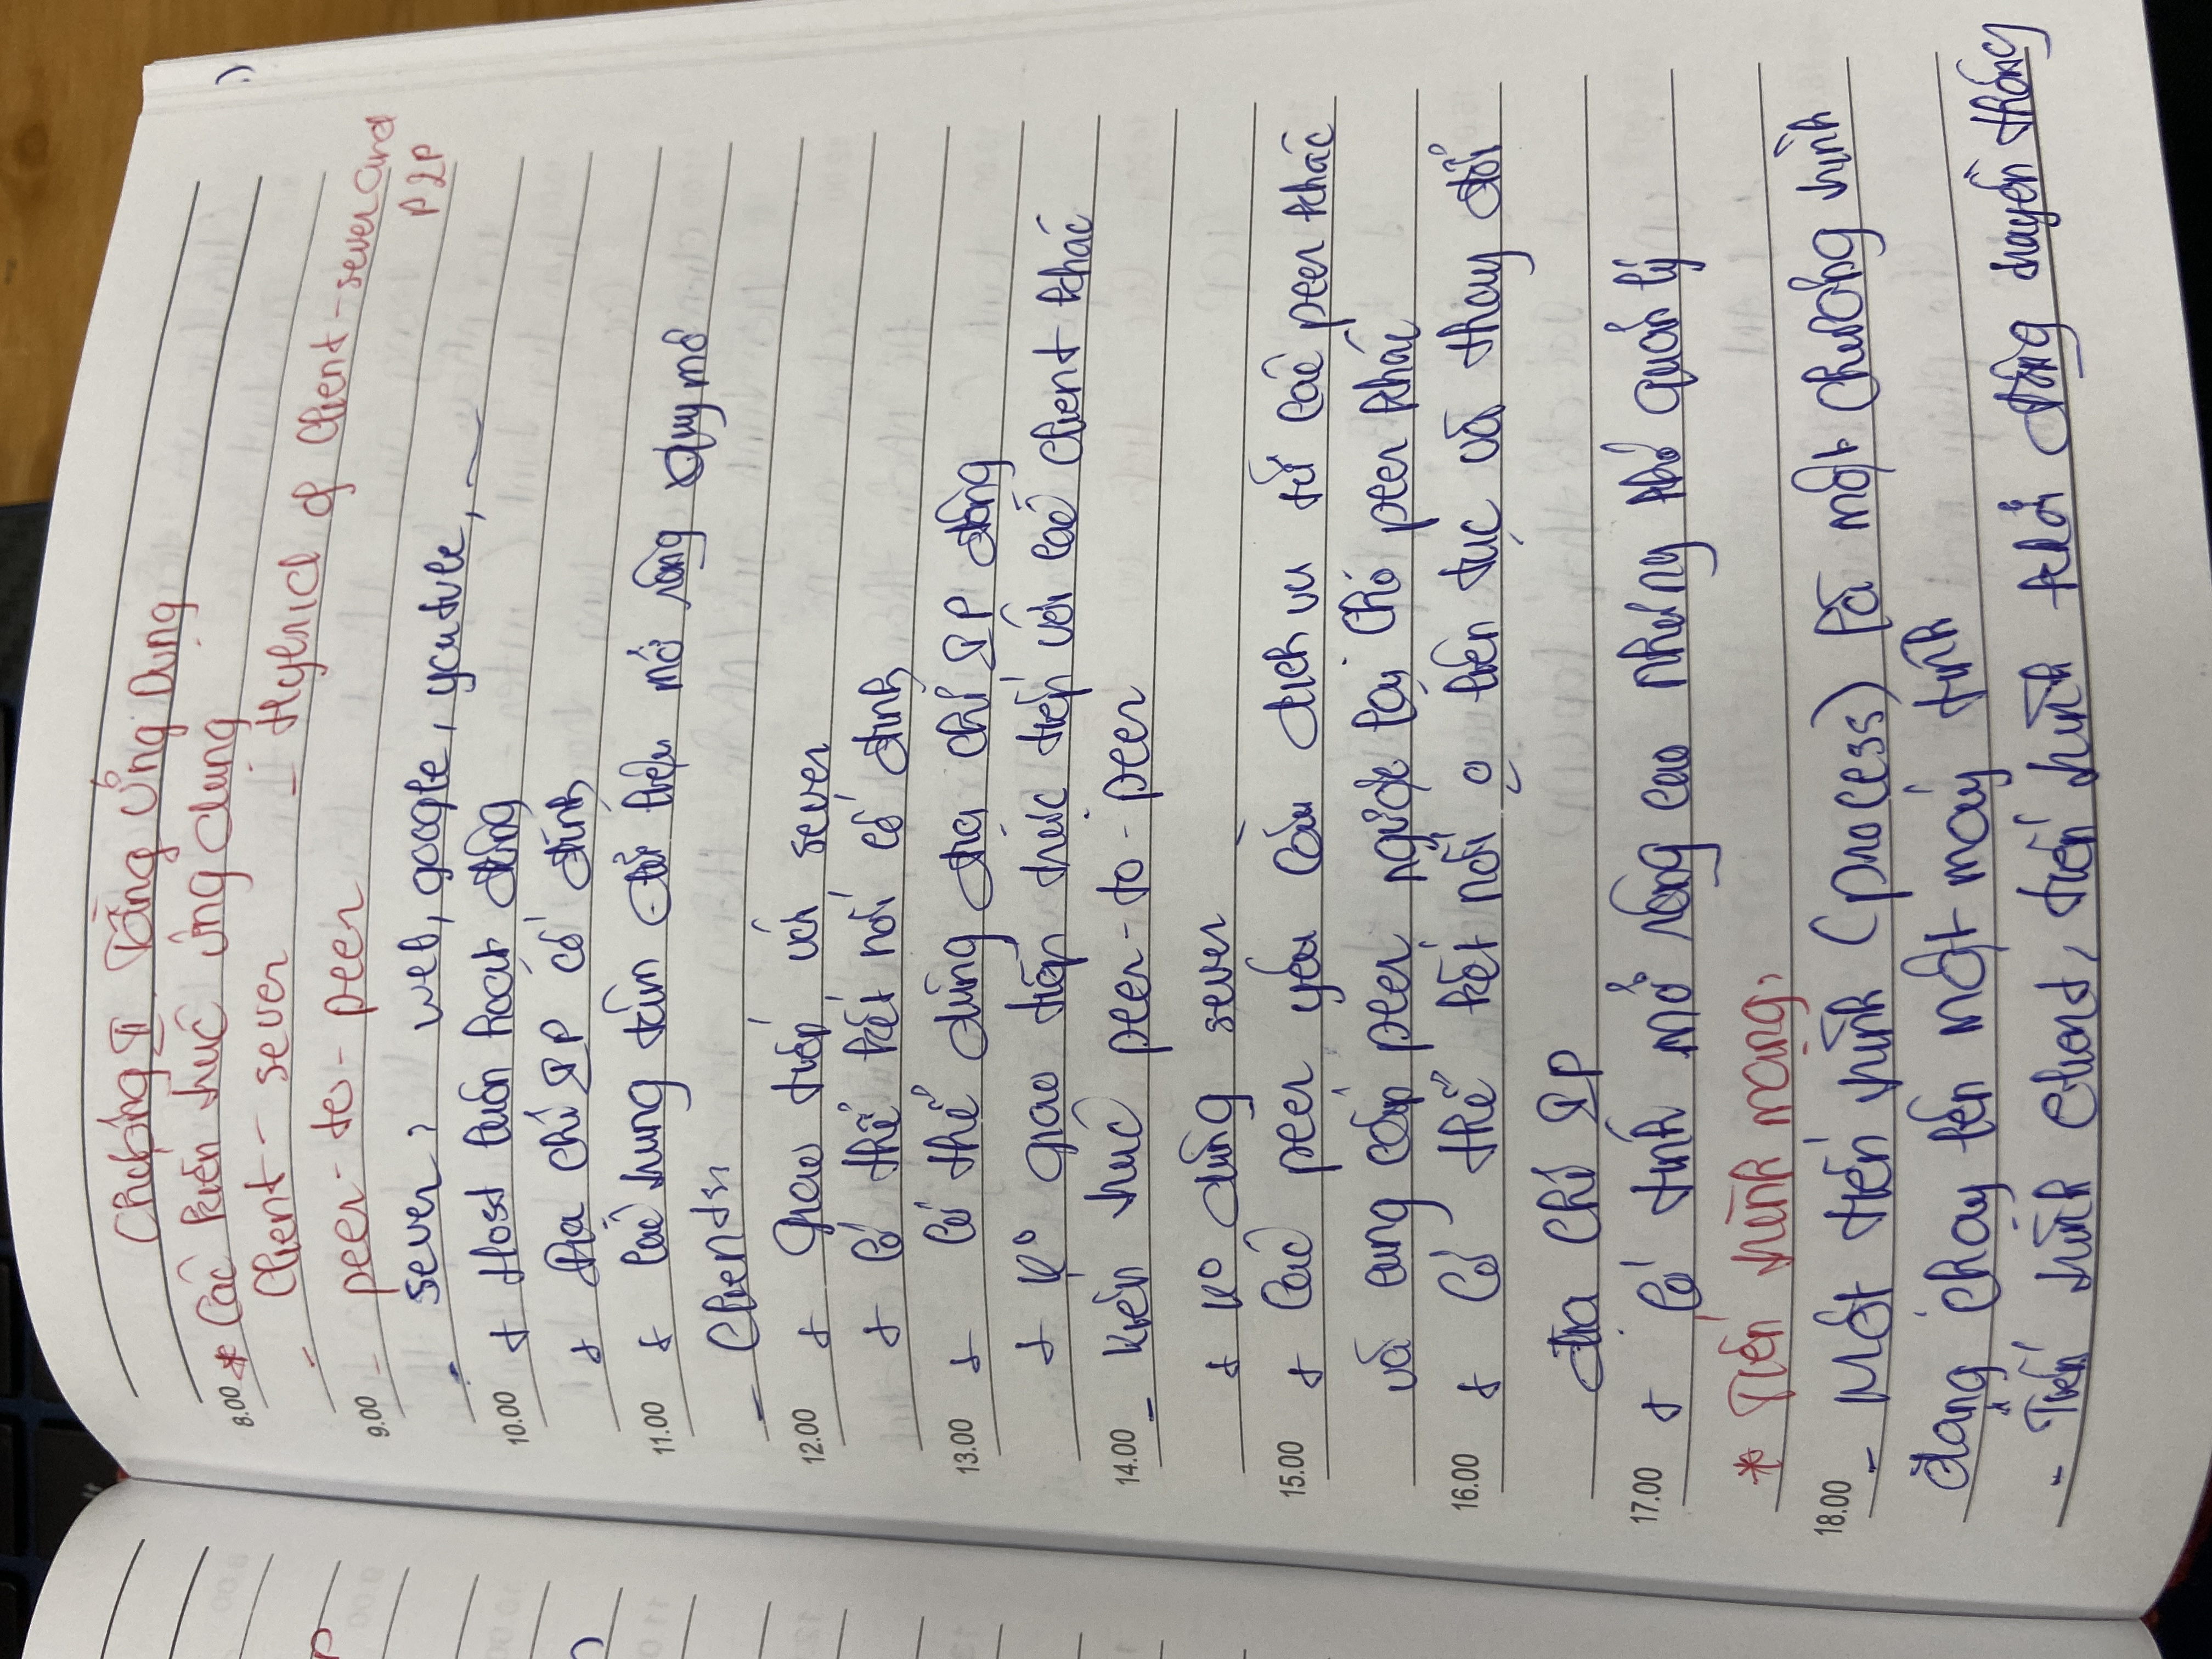 Chương II Tầng Ứng Dụng
8.00 * Các kiến trúc ứng dụng
- Client - sever - Hybrid of Client - sever and P2P
9.00 - peer - to - peer
- sever: web, google, youtube, ...
10.00 + Host luôn hoạt động
+ Địa chỉ IP cố định
11.00 + Các trung tâm dữ liệu mở rộng quy mô
- Clients:
12.00 + Giao tiếp với sever
+ Có thể kết nối cố định
13.00 + Có thể dùng địa chỉ IP động
+ K° giao tiếp trực tiếp với các client khác
14.00 - Kiến trúc peer - to - peer
+ K° dùng sever
15.00 + Các peer yêu cầu dịch vụ từ các peer khác
và cung cấp peer ngược lại cho peer khác
16.00 + Có thể kết nối liên tục và thay đổi
địa chỉ IP
17.00 + Có tính mở rộng cao nhưng khó quản lý
* Tiến trình mạng:
18.00 - Một tiến trình (process) là một chương trình
đang chạy lên một máy tính
- Tiến trình client, tiến trình khởi động truyền thông